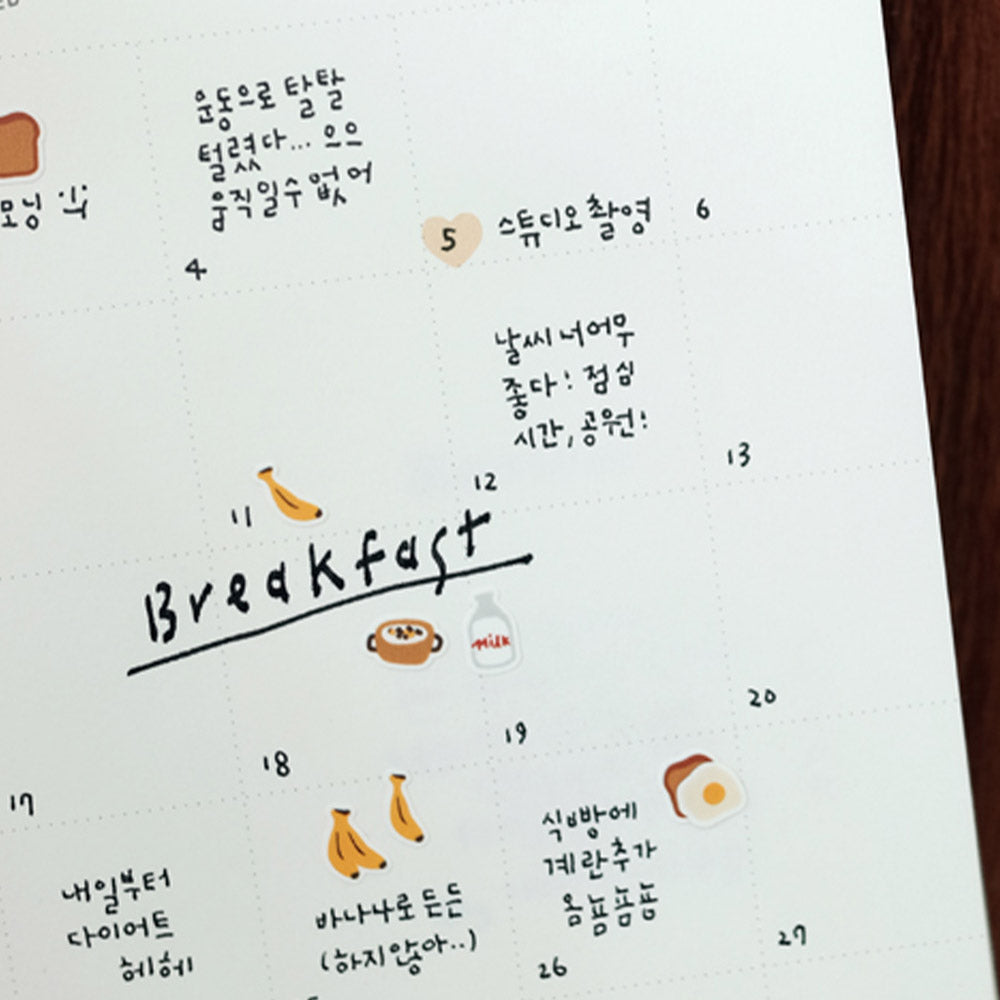 운동으로 탈탈
털렸다... 으으
움직일수 없어
모닝
4
5
스튜디오 촬영
6
날씨 너어무
좋다! 점심
시간, 공원!
11
12
13
Breakfast
Milk
17
18
19
20
내일부터
다이어트
헤헤
바나나로 든든
(하지않아..)
식빵에
계란추가
옴뇸뇸뇸
26
27